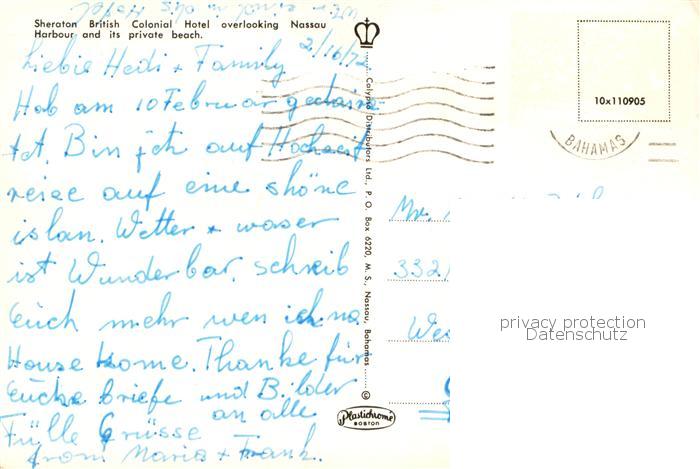 Wen einal in dis Hotel
Sheraton British Colonial Hotel overlooking Nassau
Harbour and its private beach.
2/16/72
Liebie Hedi + Family
Hab am 10 Februar geheira-
tet. Bin ich auf Hochzeit
reise auf eine shöne
islan. Wetter + waser
ist Wunderbar. schreib
Euch mehr wen ich na
House kome. Thanke für
Eucke briefe und Bilder
an alle
Fülle Grüsse
from Maria + Frank.
Calypso Distributors Ltd., P. O. Box 6220, M. S., Nassau, Bahamas
©
Plastichrome
BOSTON
10x110905
BAHAMAS
Mr.
332
Wes
privacy protection
Datenschutz